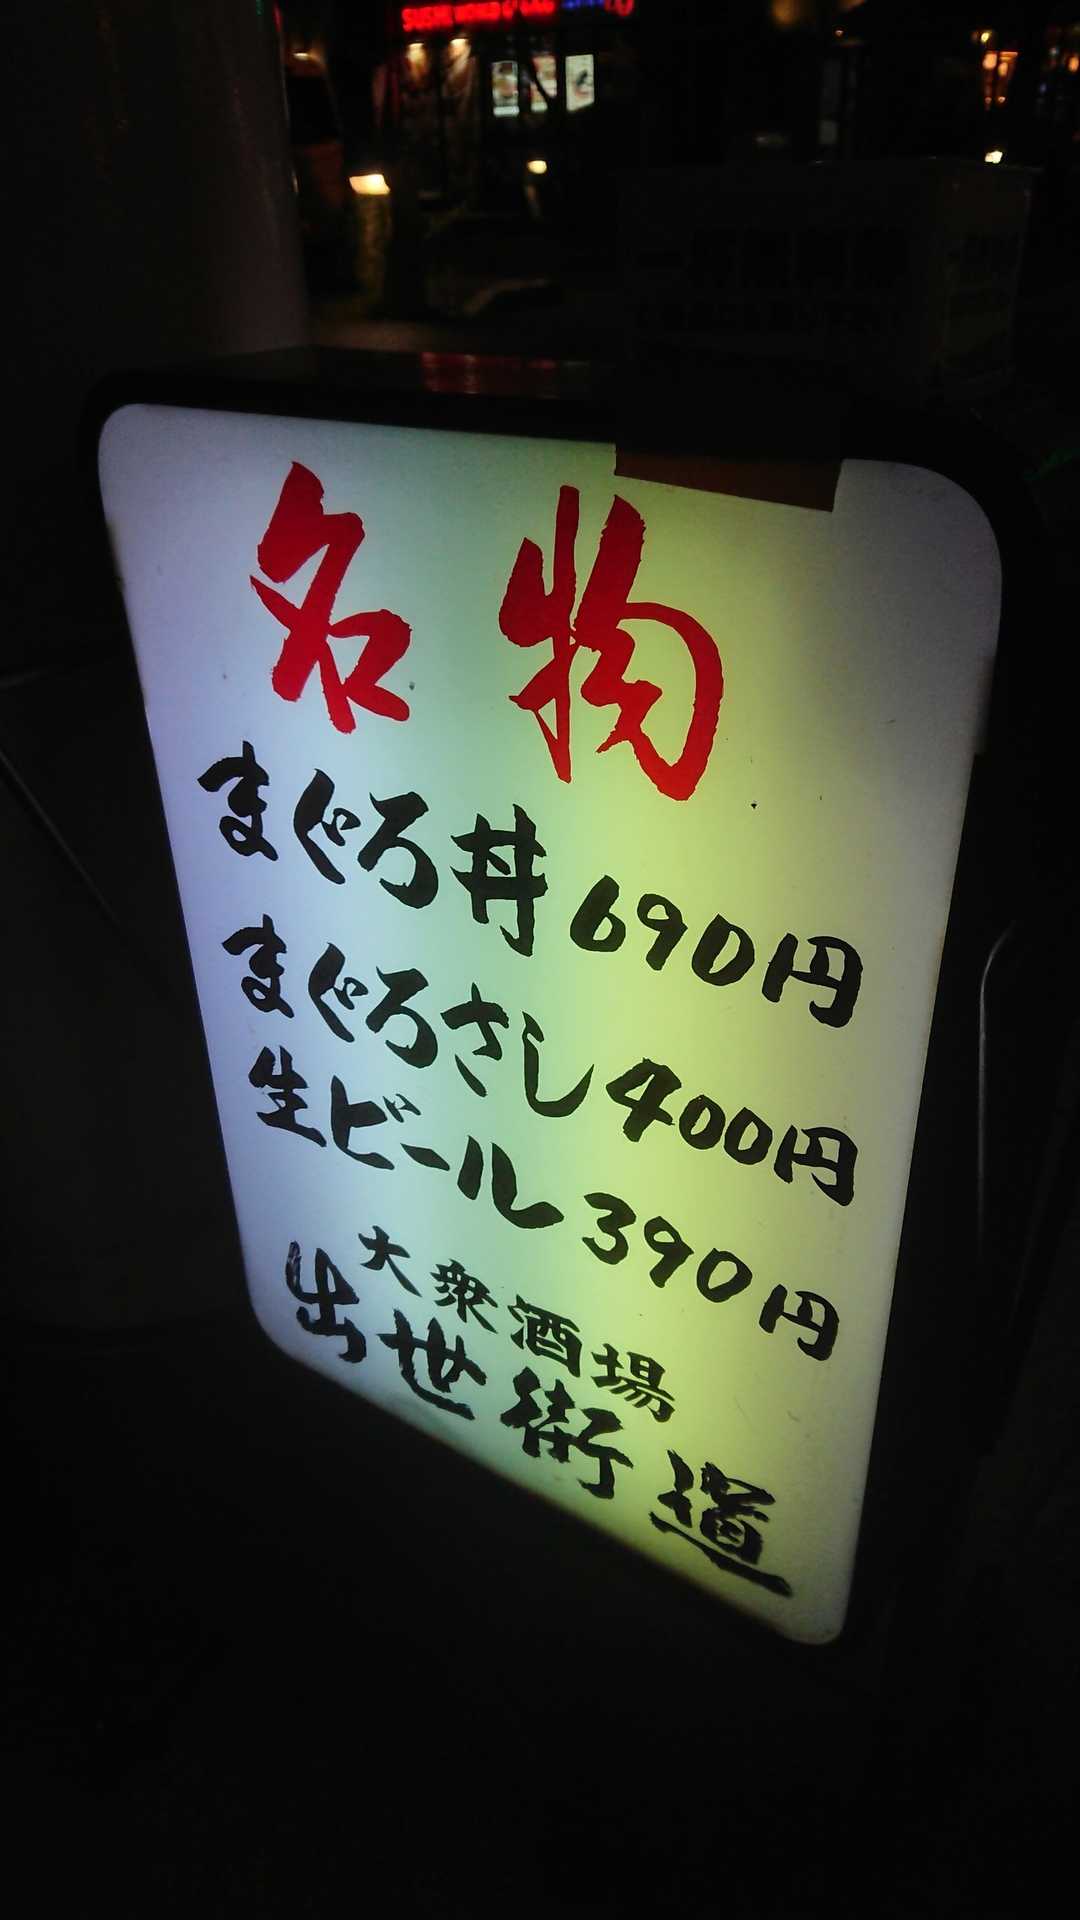 名物
まぐろ丼 690円
まぐろさし 400円
生ビール 390円
大衆酒場
出世街道